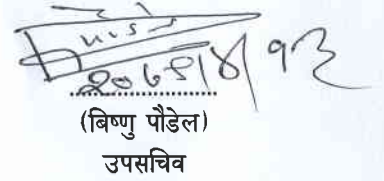 २०७९/४/१३
(बिष्णु पौडेल)
उपसचिव